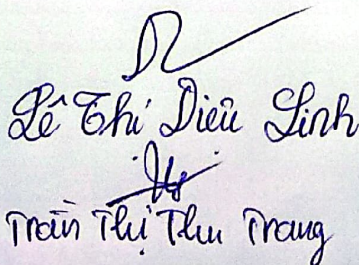 Lê Thị Diệu Linh
Trần Thị Thu Trang